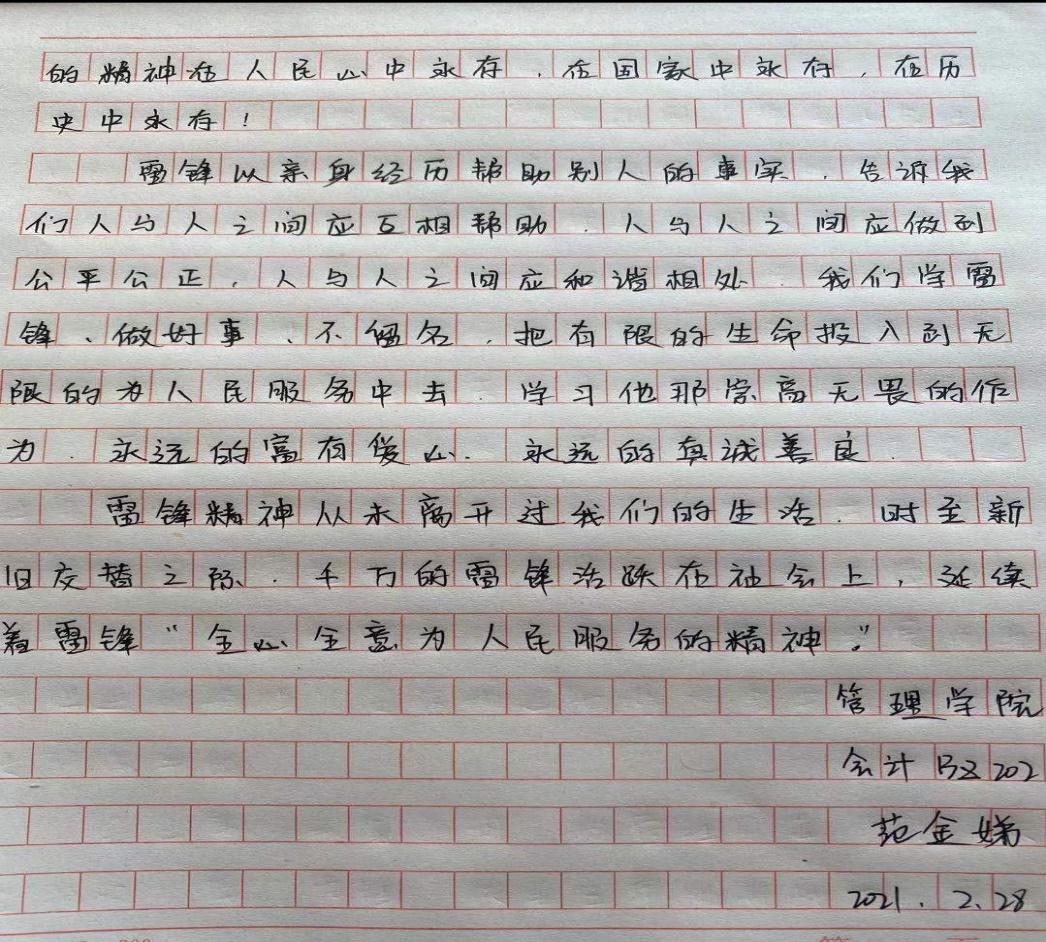 的精神在人民心中永存，在国家中永存，在历
史中永存！
雷锋以亲身经历帮助别人的事实，告诉我
们人与人之间应互相帮助．人与人之间应做到
公平公正，人与人之间应和谐相处．我们学雷
锋、做好事、不留名，把有限的生命投入到无
限的为人民服务中去．学习他那崇高无畏的作
为．永远的富有爱心．永远的真诚善良．
雷锋精神从未离开过我们的生活．时至新
旧交替之际．千万的雷锋活跃在社会上，延续
着雷锋“全心全意为人民服务的精神”．
管理学院
会计BZ202
范金娣
2021．2、28